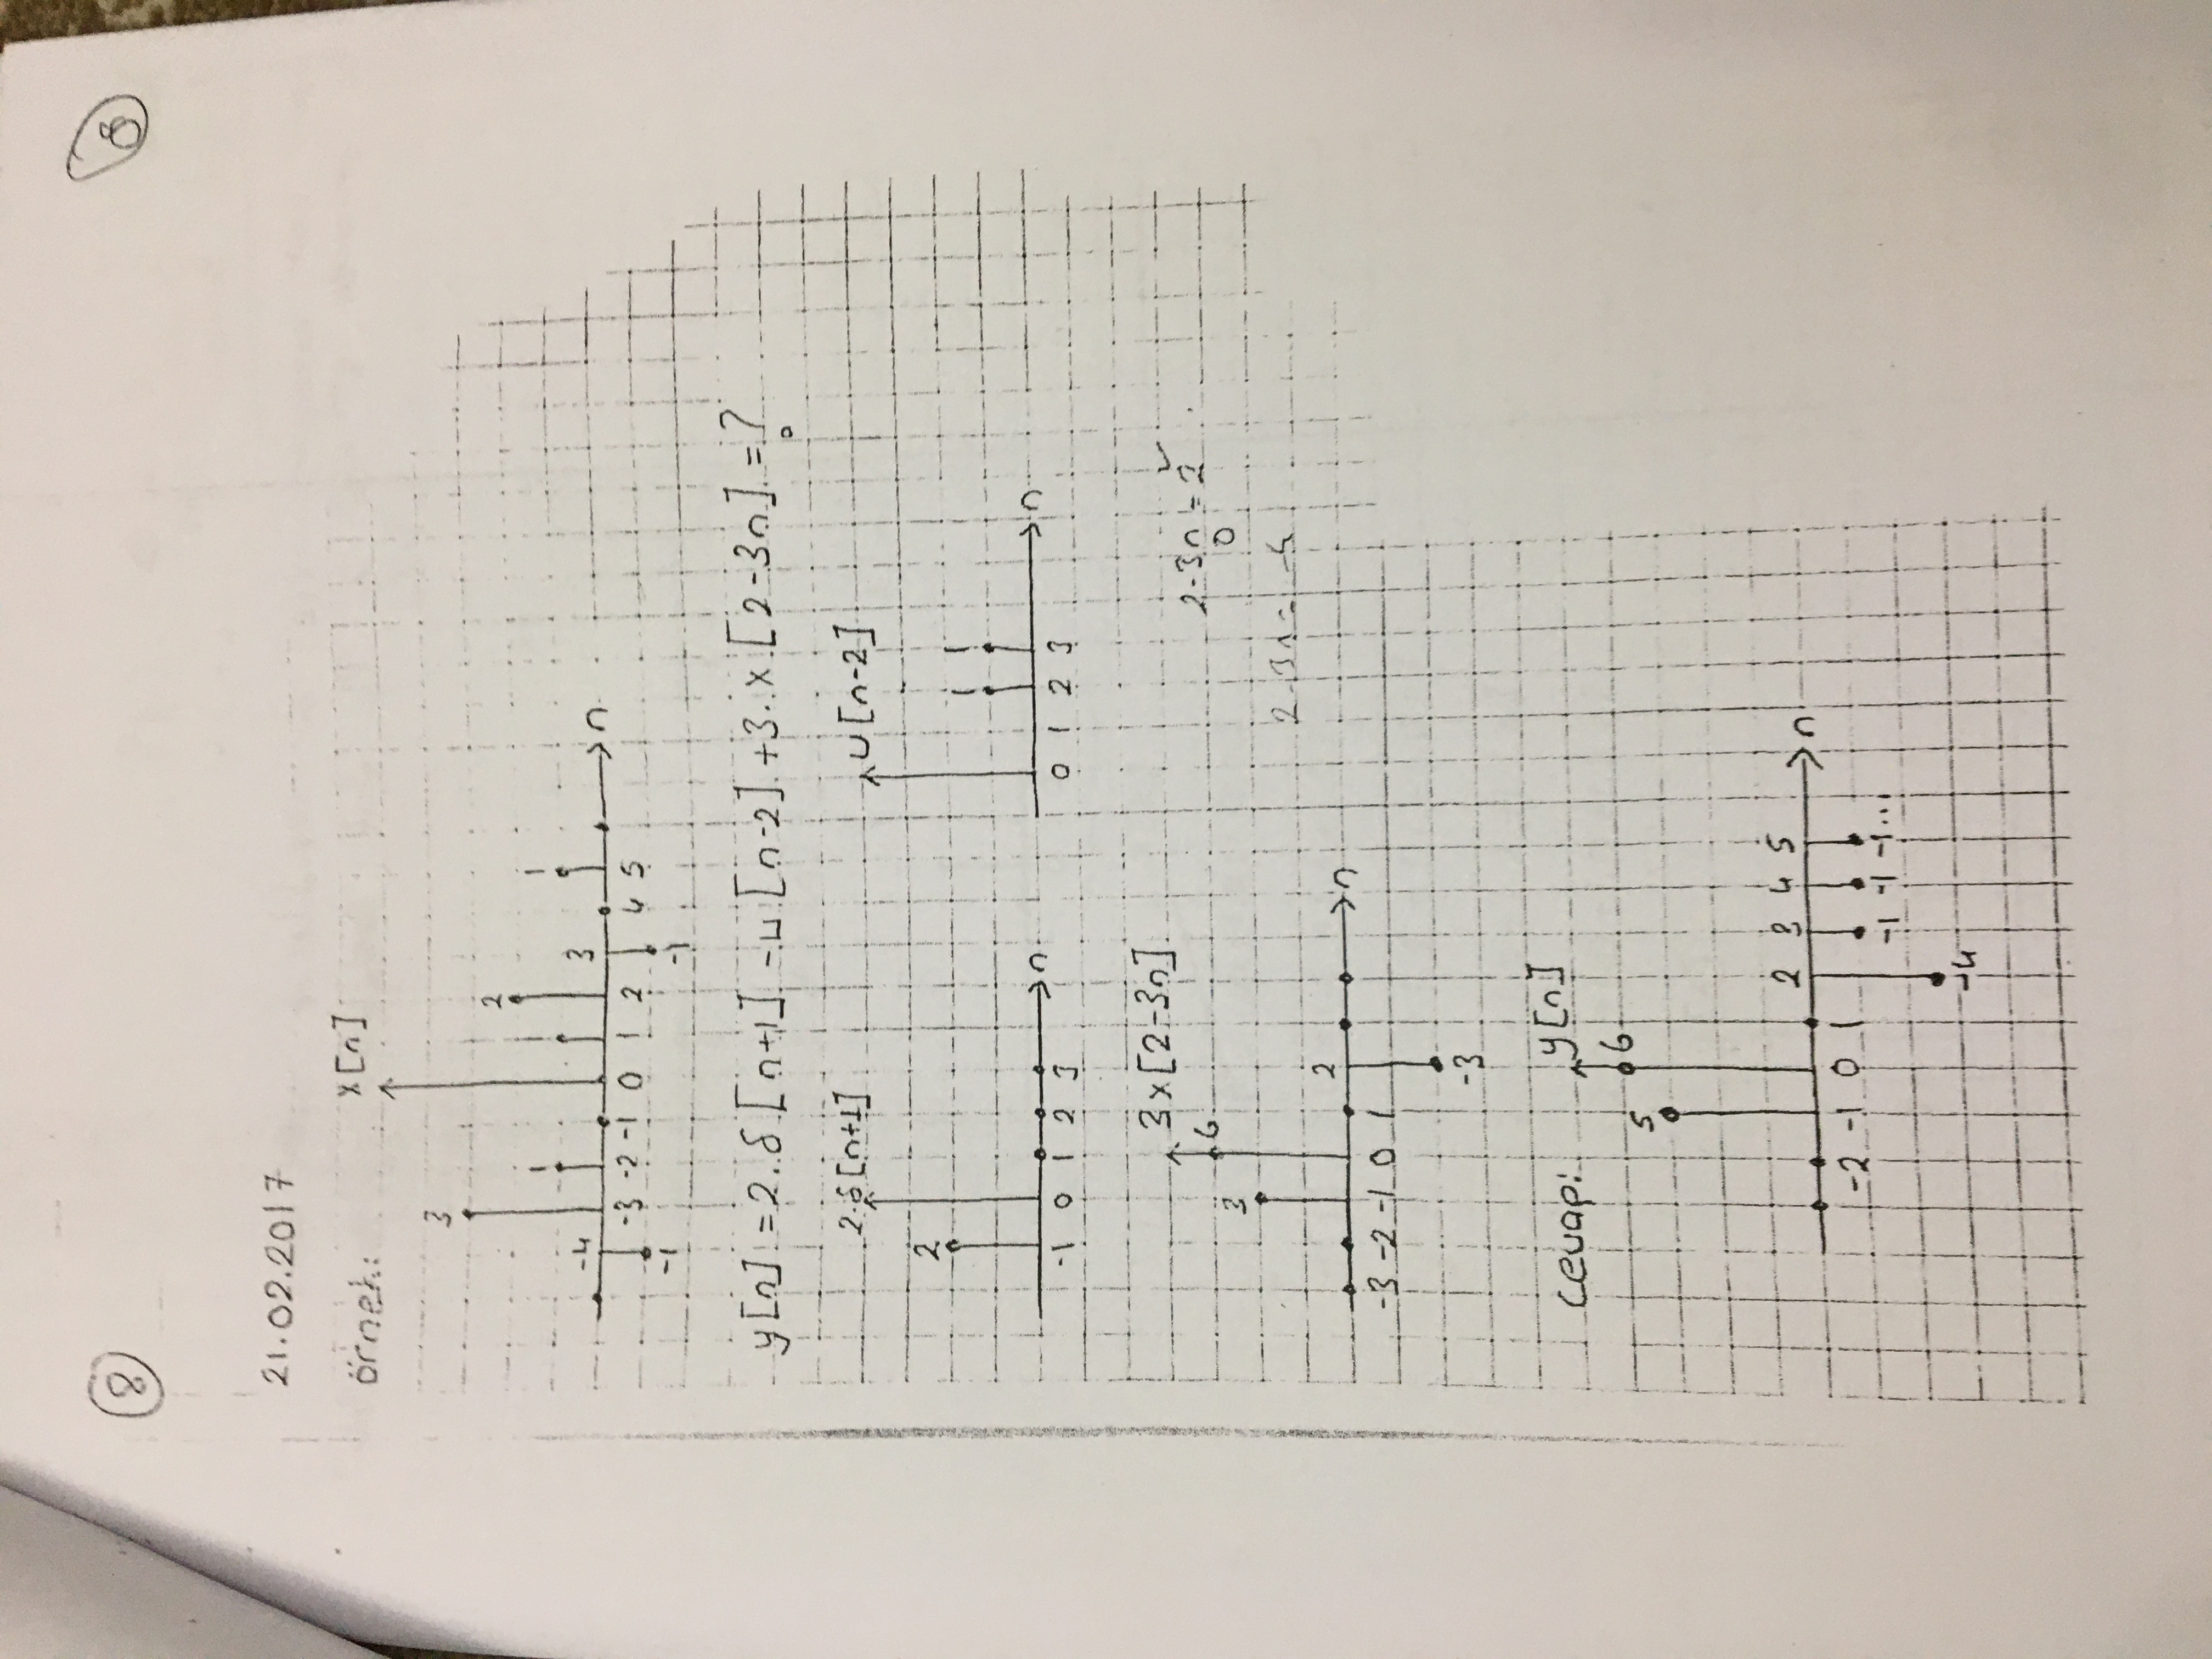 8
8
21.02.2017
örnek:
x[n]
3
1
2
1
-4
3
n
-3 -2 -1 0 1 2 4 5
-1
-1
y[n] = 2.δ[n+1] -u[n-2] +3.x[2-3n] = ?
2.δ[n+1]
u[n-2]
2
1 1
n
n
-1 0 1 2 3
0 1 2 3
3x[2-3n]
2-3n = 2
0
6
3
2-3n = -4
2
n
-3 -2 -1 0 1
-3
cevap:
y[n]
6
5
2 3 4 5
n
-2 -1 0 1
-1 -1 -1...
-4